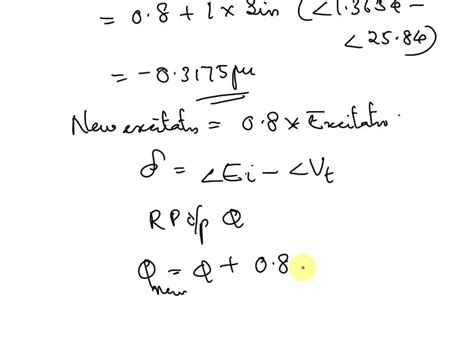 = 0.8 + 1 × Sin (∠1.3654 -
∠25.84)
= -0.3175pu
New excitatn = 0.8 × Excitatn.
δ = ∠Ei - ∠Vt
RP o/p Q
Qnew = Q + 0.8